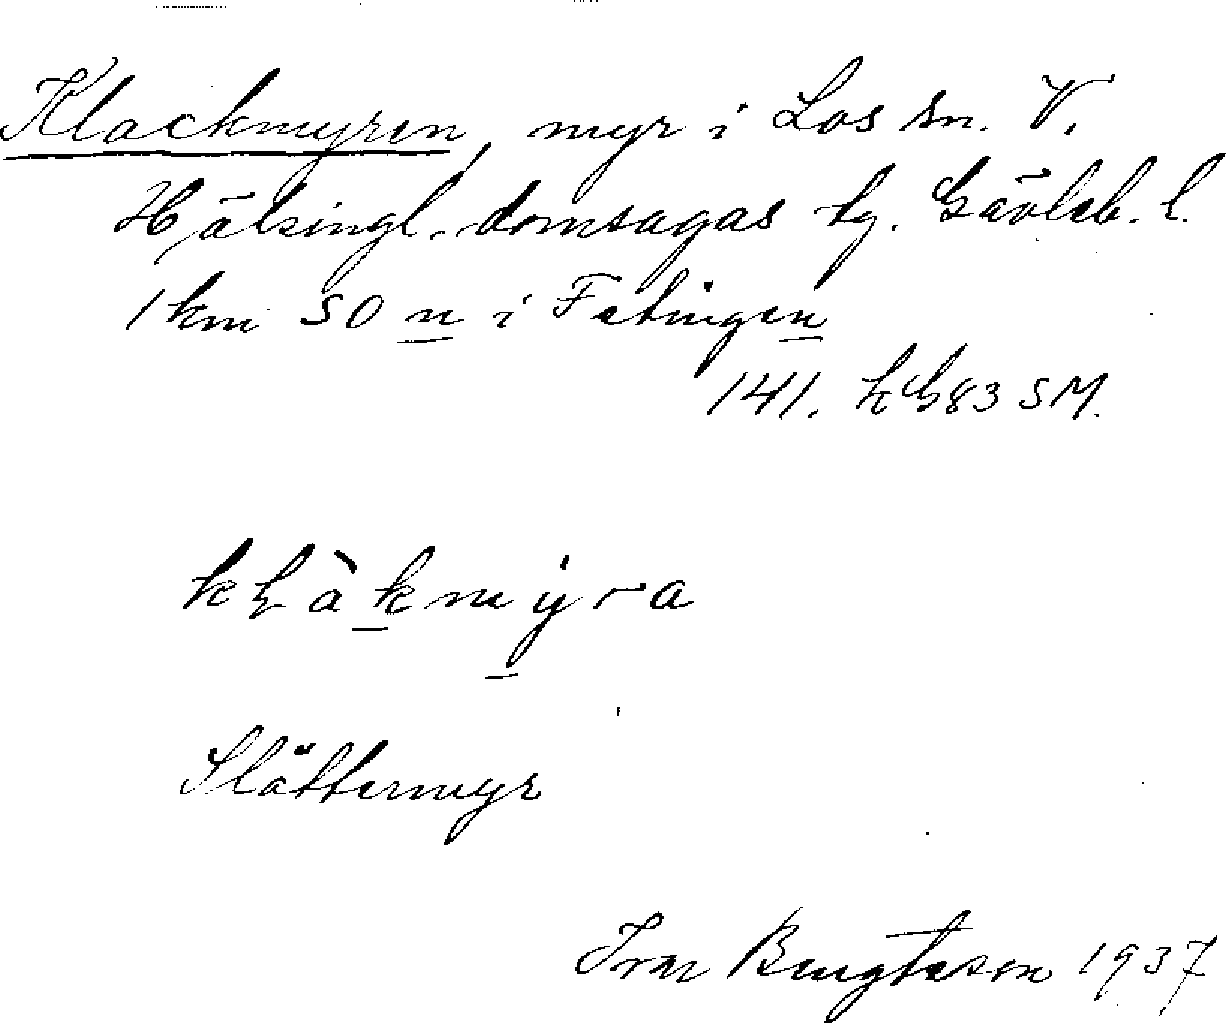 Klackmyren, myr i Los sn. V.
Hälsingl. domsagas tg. Gävleb. l.
1 km SO n i Fetingen
141. kh83 SM.
kḷàkmy̱ra
Slåttermyr
Ivar Bengtsson 1937